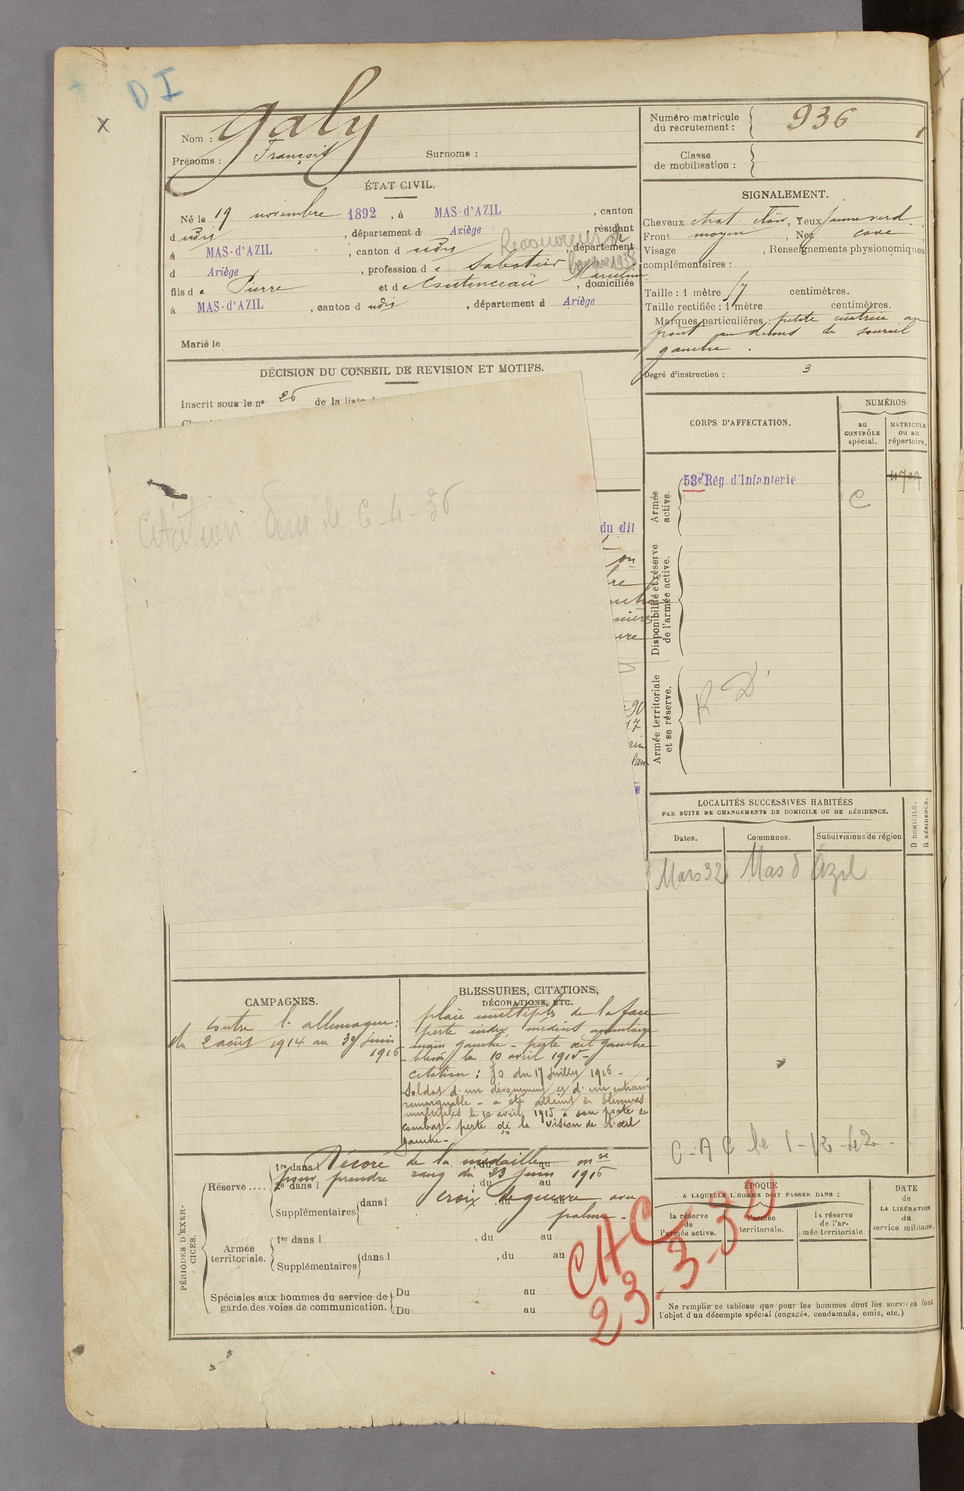 DI
X
Nom : Galy
Prénoms : François Surnoms :
Numéro matricule du recrutement : 936
Classe de mobilisation :
ÉTAT CIVIL.
Né le 19 novembre 1892, à MAS-d'AZIL, canton
d udit, département d Ariège, résidant
à MAS-D'AZIL, canton d udit, département
d Ariège, profession d e Sabotier
fils d e Pierre et d e, domiciliés
à MAS-d'AZIL, canton d udit, département d Ariège
Marié le
SIGNALEMENT.
Cheveux chat. clair, Yeux jaune verd.
Front moyen, Nez cave
Visage, Renseignements physionomiques
complémentaires :
Taille : 1 mètre 57 centimètres.
Taille rectifiée : 1 mètre centimètres.
Marques particulières : petite cicatrice au
front au dessus du sourcil
gauche.
Degré d'instruction : 3
DÉCISION DU CONSEIL DE REVISION ET MOTIFS.
Inscrit sous le nº 26 de la liste
Citation dem le 6-4-36
du dit
CORPS D'AFFECTATION.
NUMÉROS
au CONTRÔLE spécial.
MATRICULE ou au répertoire.
Armée active.
53e Rég d'Infanterie
C
Disponibilité et réserve de l'armée active.
Armée territoriale et sa réserve.
R. D
LOCALITÉS SUCCESSIVES HABITÉES
PAR SUITE DE CHANGEMENTS DE DOMICILE OU DE RÉSIDENCE.
Dates. Communes. Subdivisions de région
D DOMICILE. R RÉSIDENCE.
Mars 32 Mas d'Azil
CAMPAGNES.
Contre l'allemagne :
du 2 août 1914 au 30 juin
1916
BLESSURES, CITATIONS,
DÉCORATIONS, ETC.
plaie multiples de la face
perte index, médius annulaire
main gauche - perte œil gauche
blessé le 10 avril 1915 -
citation : JO du 17 juillet 1916 -
Soldat d'un dévouement et d'un entrain
remarquable - a été atteint de blessures
multiples le 10 avril 1915 à son poste de
combat - perte de la vision de l'œil
gauche -
C-A C le 1-12-42.
PÉRIODES D'EXERCICES.
Réserve .... 1re dans l du au
2e dans l, du au
Supplémentaires dans l, du au
Décoré de la médaille mre
pour prendre rang du 23 juin 1916
croix de guerre avec
palme -
Armée territoriale. 1re dans l, du au
Supplémentaires dans l, du au
Spéciales aux hommes du service de garde des voies de communication. Du au
Du au
CAC
23-3-32
ÉPOQUE
A LAQUELLE L'HOMME DOIT PASSER DANS :
la réserve de l'armée active.
l'armée territoriale.
la réserve de l'armée territoriale.
DATE de LA LIBÉRATION du service militaire.
Ne remplir ce tableau que pour les hommes dont les services font
l'objet d'un décompte spécial (engagés, condamnés, omis, etc.)